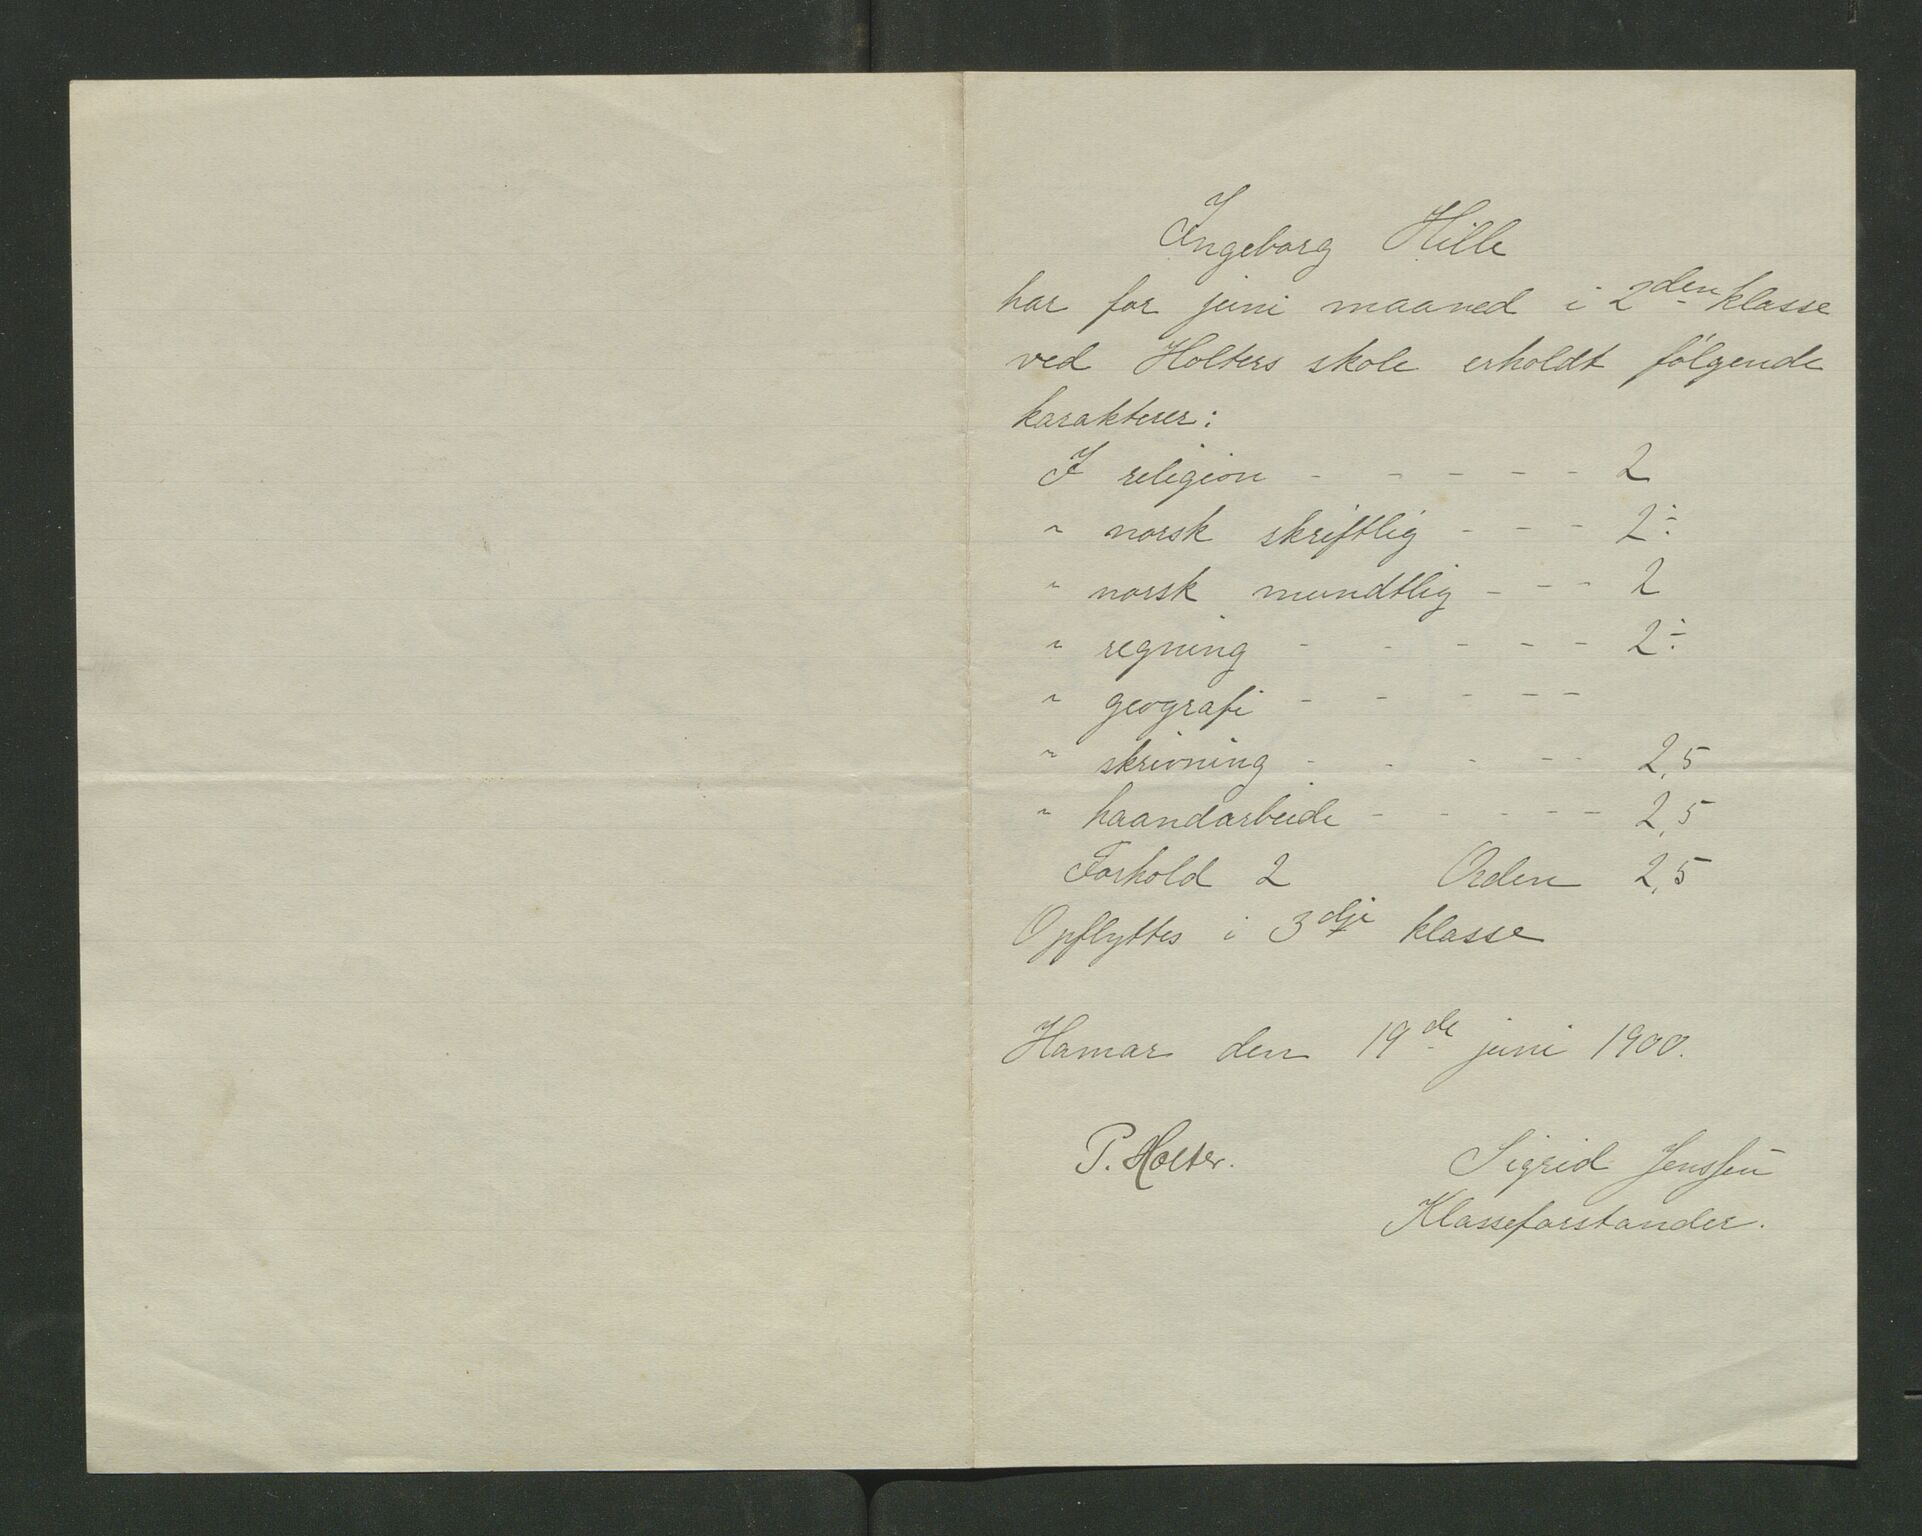 Ingeborg Hille
har for juni maaned i 2den klasse
ved Holters skole erholdt følgende
karakterer:
I religion - - - - - 2
" norsk skriftlig - - - 2÷
" norsk mundtlig - - - 2
" regning - - - - - 2÷
" geografi - - - - -
" skrivning - - - - - 2,5
" haandarbeide - - - - - 2,5
Forhold 2 Orden 2,5
Opflyttes i 3dje klasse
Hamar den 19de juni 1900.
P. Holter. Sigrid Jenssen
Klasseforstander.